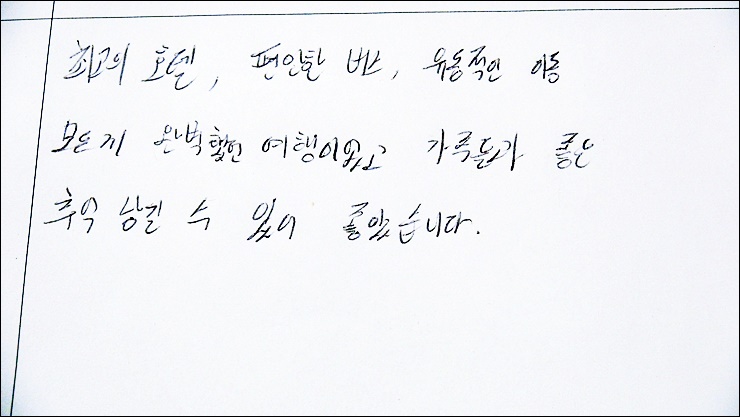 최고의 호텔, 편안한 버스, 유동적인 이동
모든게 완벽했던 여행이었고 가족들과 좋은
추억 남길 수 있어 좋았습니다.